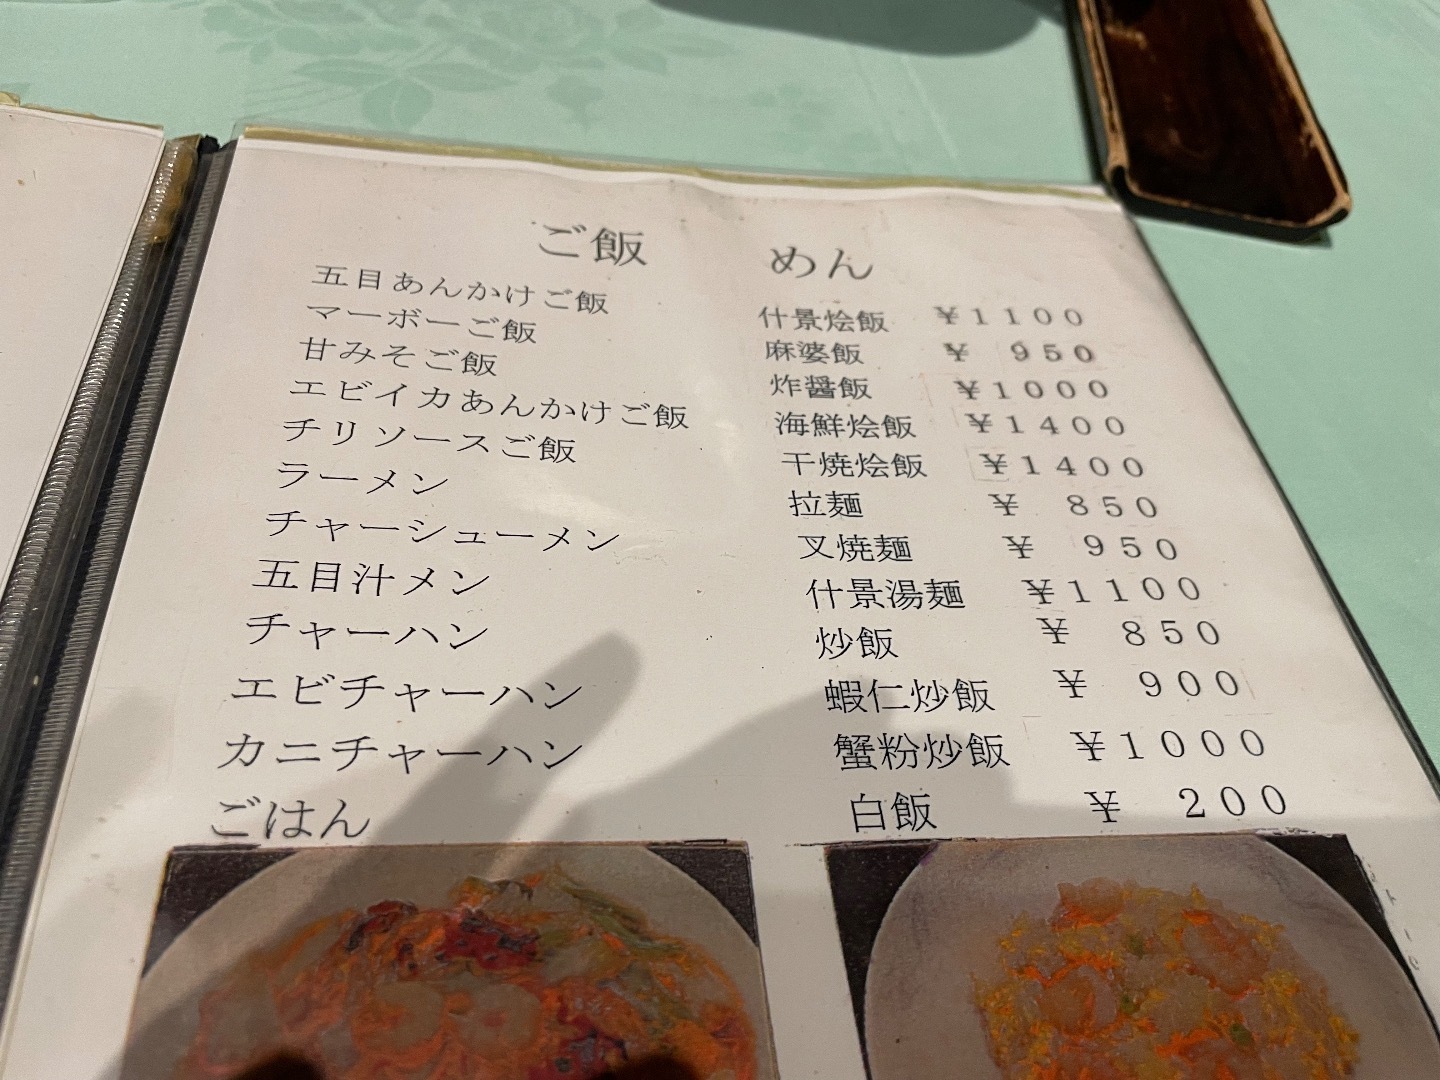 ご飯 めん
五目あんかけご飯 什景烩飯 ¥1100
マーボーご飯 麻婆飯 ¥ 950
甘みそご飯 炸醤飯 ¥1000
エビイカあんかけご飯 海鮮烩飯 ¥1400
チリソースご飯 干焼烩飯 ¥1400
ラーメン 拉麺 ¥ 850
チャーシューメン 叉焼麺 ¥ 950
五目汁メン 什景湯麺 ¥1100
チャーハン 炒飯 ¥ 850
エビチャーハン 蝦仁炒飯 ¥ 900
カニチャーハン 蟹粉炒飯 ¥1000
ごはん 白飯 ¥ 200